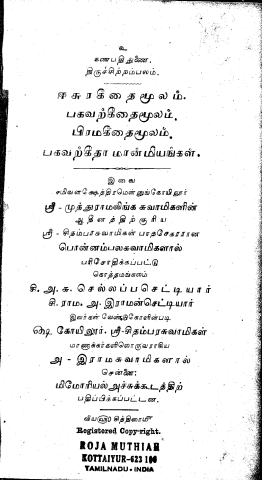 உ
கணபதி துணை.
திருச்சிற்றம்பலம்.
ஈசுரகீதைமூலம்.
பகவற்கீதைமூலம்.
பிரமகீதைமூலம்.
பகவற்கீதா மான்மியங்கள்.
இவை
ஸ்ரீ - முத்துராமலிங்க சுவாமிகளின்
ஆதீனத்திற்குரிய
ஸ்ரீ - சிதம்பரசுவாமிகள் பாதசேகரரான
பொன்னம்பலசுவாமிகளால்
பரிசோதிக்கப்பட்டு
கொத்தமங்கலம்
சி. அ. சு. செல்லப்பசெட்டியார்
சி. ராம. அ. இராமன்செட்டியார்
இவர்கள் வேண்டுகோளின்படி
ஷ கோயிலூர். ஸ்ரீ-சிதம்பரசுவாமிகள்
மாணாக்கர்களிலொருவராகிய
அ - இராமசுவாமிகளால்
சென்னை:
மிமோரியல் அச்சுக்கூடத்திற்
பதிப்பிக்கப்பட்டன.
சித்திரைமீ
Registered Copy-right.
ROJA MUTHIAH
KOTTAIYUR-623 106
TAMILNADU - INDIA